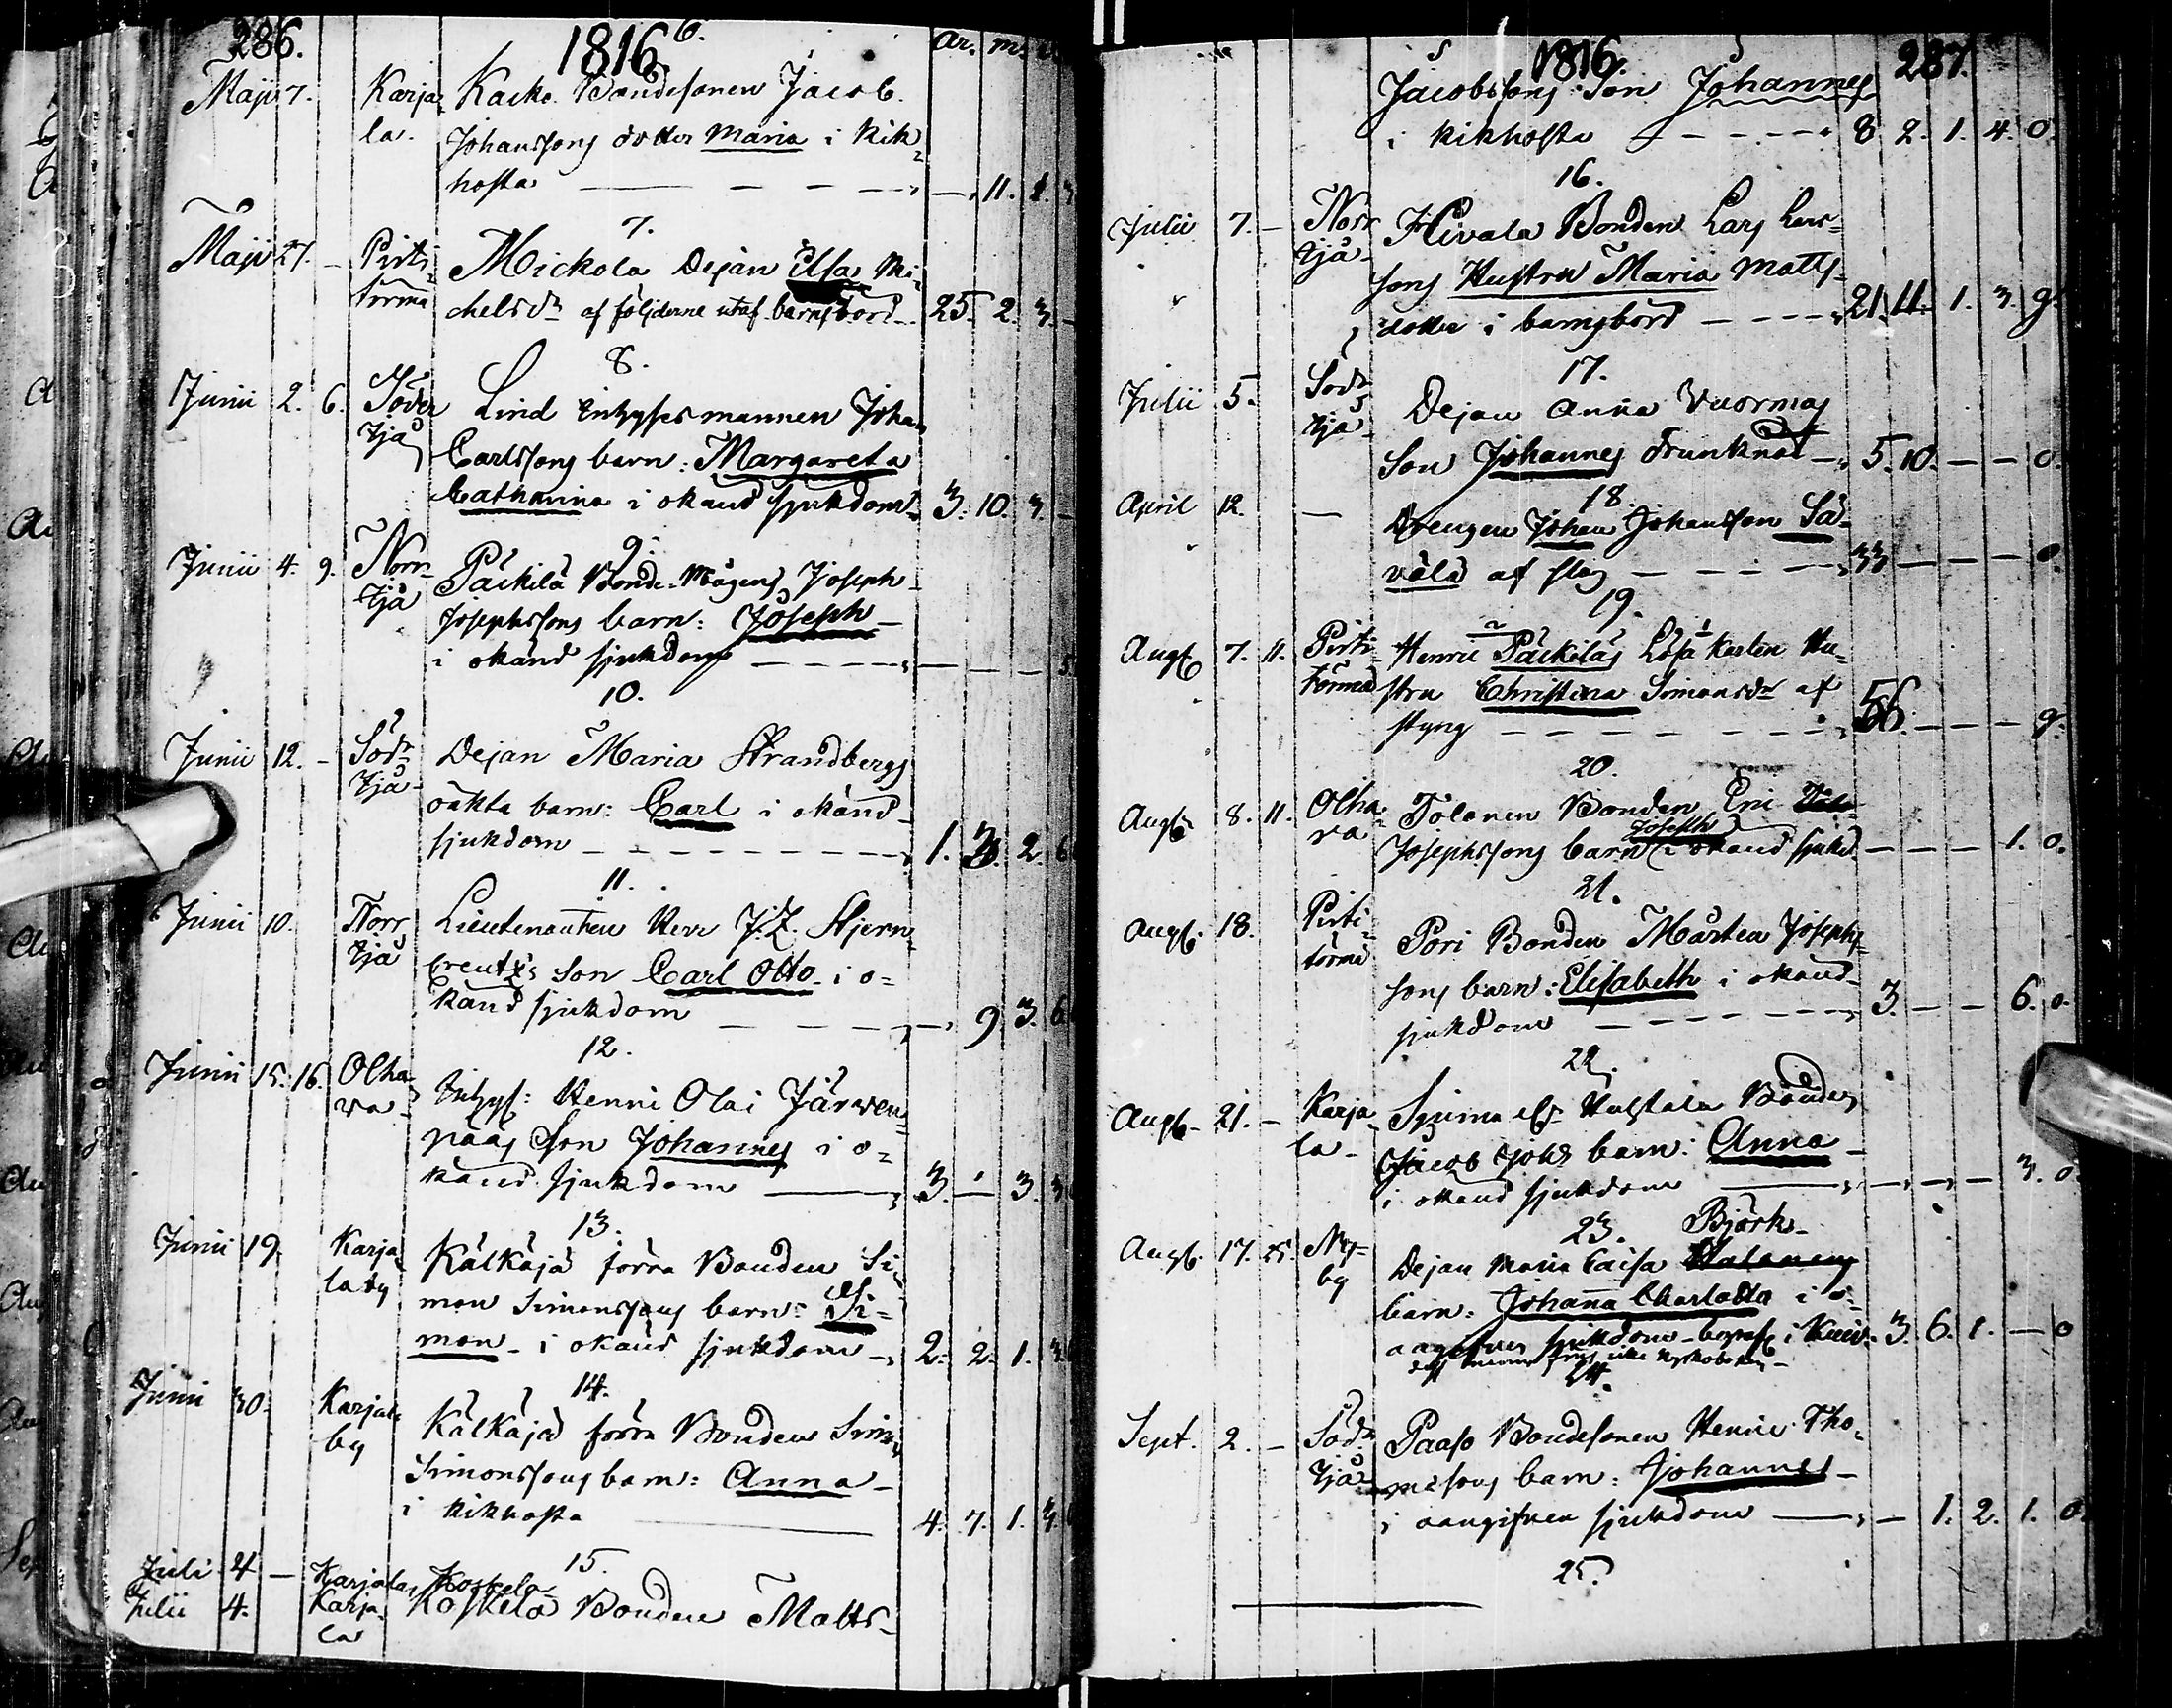 286.
1816
6.
år. m.
Maji 7. Karja Kaiko Bondesonen Jacob
la. Johanssons dotter Maria i Kik
hosta — 11. 1.
7.
Maji 27. – Pirti Mickola Dejan Elsa Mi
törmä chelsdr af följderne utaf barnsbörd 25. 2. 3.
8.
Junii 2. 6. Söder Lind Inhyses mannen Johan
Ijå Carlssons barn: Margareta
Catharina i okänd sjukdom 3. 10. 3.
9.
Junii 4. 9. Norr Päckilä Bonde-Mågens Joseph
Ijå Josephssons barn: Joseph
i okänd sjukdom — — — 5
10.
Junii 12. – Södr Dejan Maria Strandbergs
Ijå oäkta barn: Carl i okänd
sjukdom 1. 3. 2. 6
11.
Junii 10. Norr Lieutenanten Herr J. Z. Stjern
Ijå Creutz's Son Carl Otto i o=
känd sjukdom — 9 3. 6
12.
Junii 15. 16. Olha Inhys: Henric Olai Järwen
va pääs Son Johannes i o=
känd sjukdom 3. – 3.
13.
Junii 19. Karja Kälkäjä förra Bonden Si
la by mon Simonssons barn: Si=
mon i okänd sjukdom 2. 2. 1. 3
14.
Junii 30. Karjala Kälkäjä förra Bonden Simon
by Simonssons barn: Anna
i kikhosta 4. 7. 1. 3.
15.
Juli 4 – Karjala, Koskela
Julii 4. Karja Koskela Bonden Matts
la
1816.
287.
Jacobssons Son Johannes
i kikhosta 8 2. 1. 4. 0.
16.
Julii 7. – Norr Hivala Bonden Lars Lars
Ijå sons Hustru Maria Matts
dotter i barnsbörd 21. 11. 1. 3. 9.
17.
Julii 5. Södr Dejan Anna Vuormas
Ijå Son Johannes drunknat 5. 10. – – 0.
18.
April 12. — Drengen Johan Johansson Sä
välä af slag 33. — — — 0.
19.
Aug. 7. 11. Pirti Henric Päckiläs Lösa Karlen Hu
törmä stru Christina Simonsdr af
styng 56. — — — 9.
20.
Aug. 8. 11. Olha Tolonen Bonden Eric
va Josephssons barn Joseph i okänd sjukd. — — — 1. 0.
21.
Aug. 18. Pirti Pori Bonden Mårten Josephs
törmä sons barn: Elisabeth i okänd
sjukdom 3. — — 6. 0.
22.
Aug. 21. – Karja Bondes
la Jacob Johs barn: Anna
i okänd sjukdom — — — 3. 0.
23. Björk
Aug. 17. 25. Ny= Dejan Maria Caisa
by barn: Johanna Charlotta i o=
angifven sjukdom 3. 6. 1. — 0
24.
Sept. 2. – Södr Paaso Bondesonen Henric Tho
Ijå massons barn: Johannes
i oangifven sjukdom — 1. 2. 1. 0.
25.